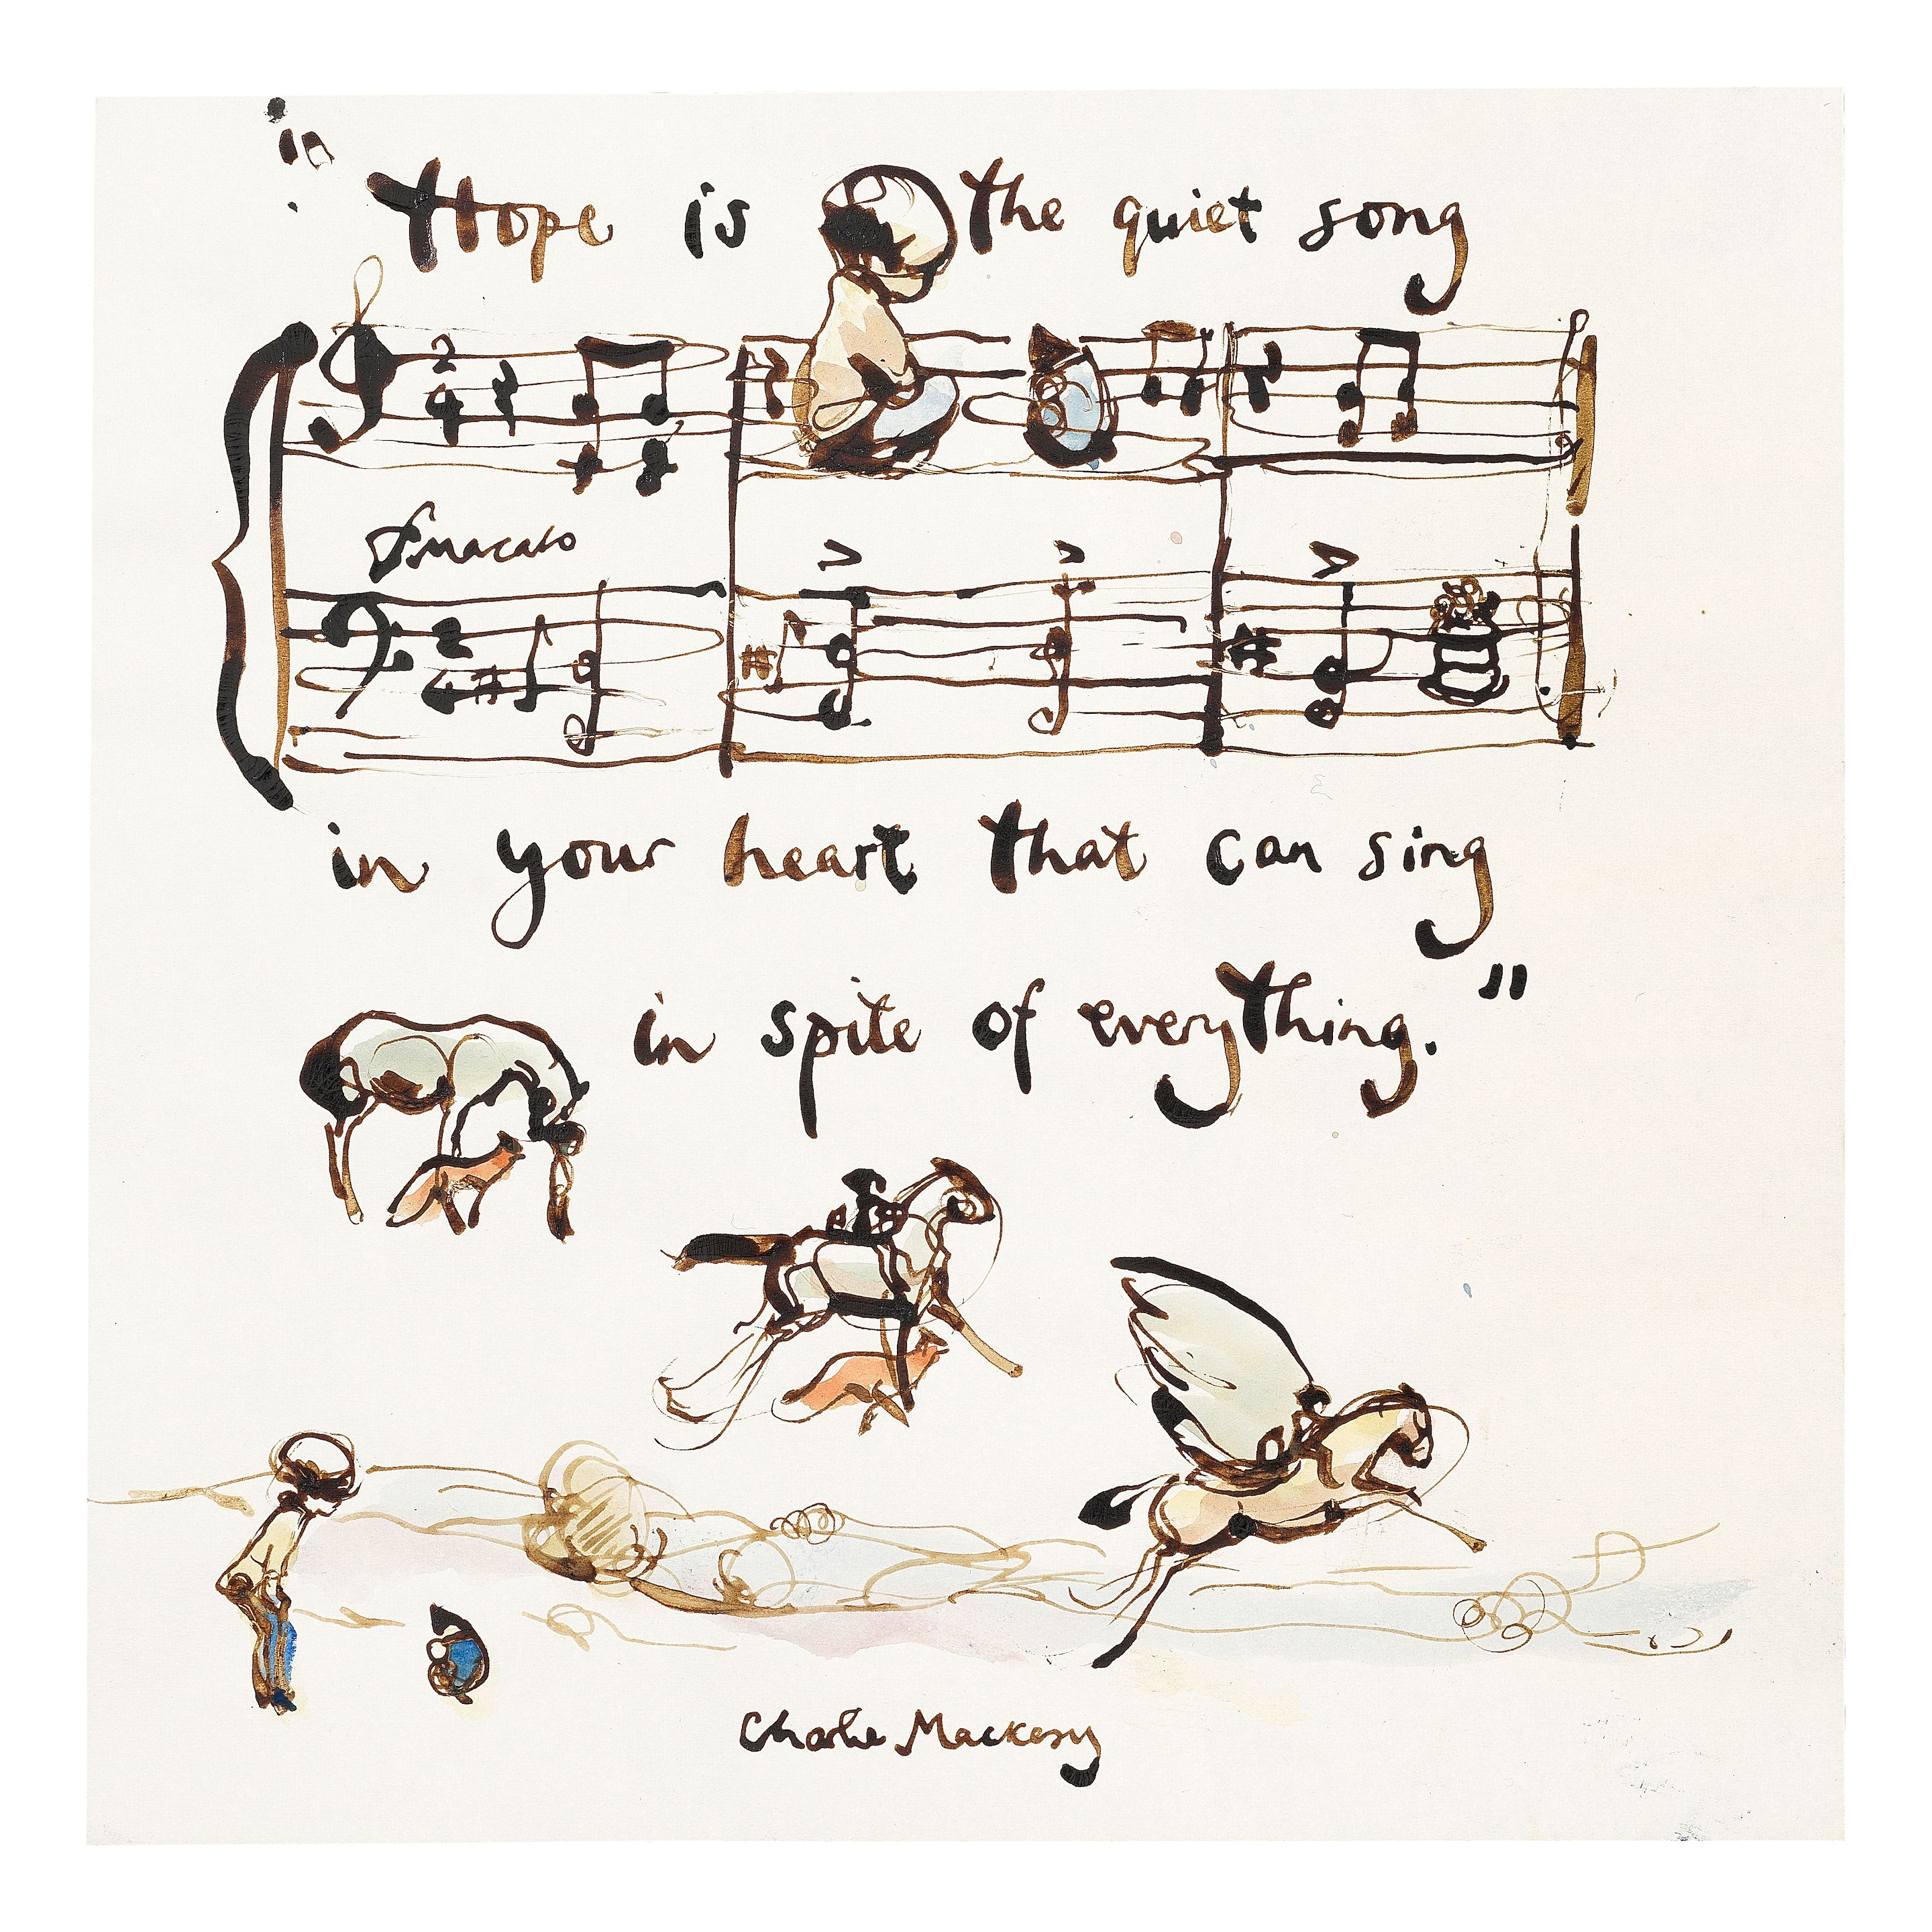 "Hope is the quiet song
2
4
2
4
in your heart that can sing
in spite of everything."
Charlie Mackesy